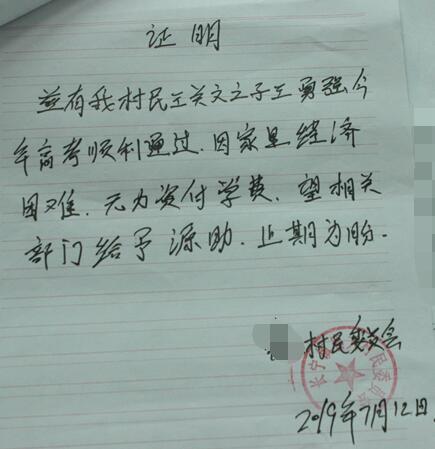 证明
兹有我村民王关文之子王勇强今
年高考顺利通过.因家里经济
困难.无力资付学费.望相关
部门给予源助.止期为盼.
村民委员会
长宁 民委员会
2019年7月12日.